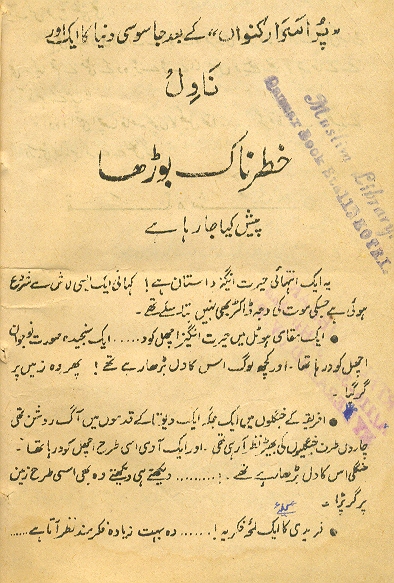 ”پُراسرار کنواں“ کے بعد جاسوسی دنیا کا ایک اور
ناول
خطرناک بوڑھا
پیش کیا جا رہا ہے
Muslim Library
ORIENT BOOK
یہ ایک انتہائی حیرت انگیز داستان ہے! کہانی ایک ایسی لاش سے شروع
ہوئی ہے جسکی موت کی وجہ ڈاکٹر بھی نہیں بتا سکے تھے۔
● ایک مقامی ہوٹل میں حیرت انگیز اچھل کود..... ایک سنجیدہ صورت نوجوان
اچھل کود رہا تھا۔ اور کچھ لوگ اس کا دل بڑھا رہے تھے! پھر وہ زمین پر
گر گیا
● افریقہ کے جنگلوں میں ایک جگہ ایک دیوتا کے قدموں میں آگ روشن تھی
چاروں طرف جنگلیوں کی بھیڑ نظر آرہی تھی۔ اور ایک آدمی اسی طرح اچھل کود رہا تھا۔
جنگلی اس کا دل بڑھا رہے تھے۔!....... دیکھتے ہی دیکھتے وہ بھی اسی طرح زمین
پر گر پڑا۔
● فریدی کا ایک لمحۂ فکریہ!...... وہ بہت زیادہ فکرمند نظر آتا ہے.....